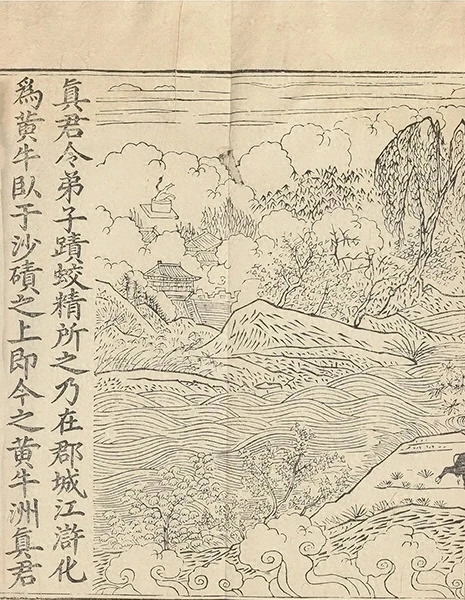 眞君令弟子蹟蛟精所之乃在郡城江滸化
爲黃牛臥于沙磧之上即今之黃牛洲真君